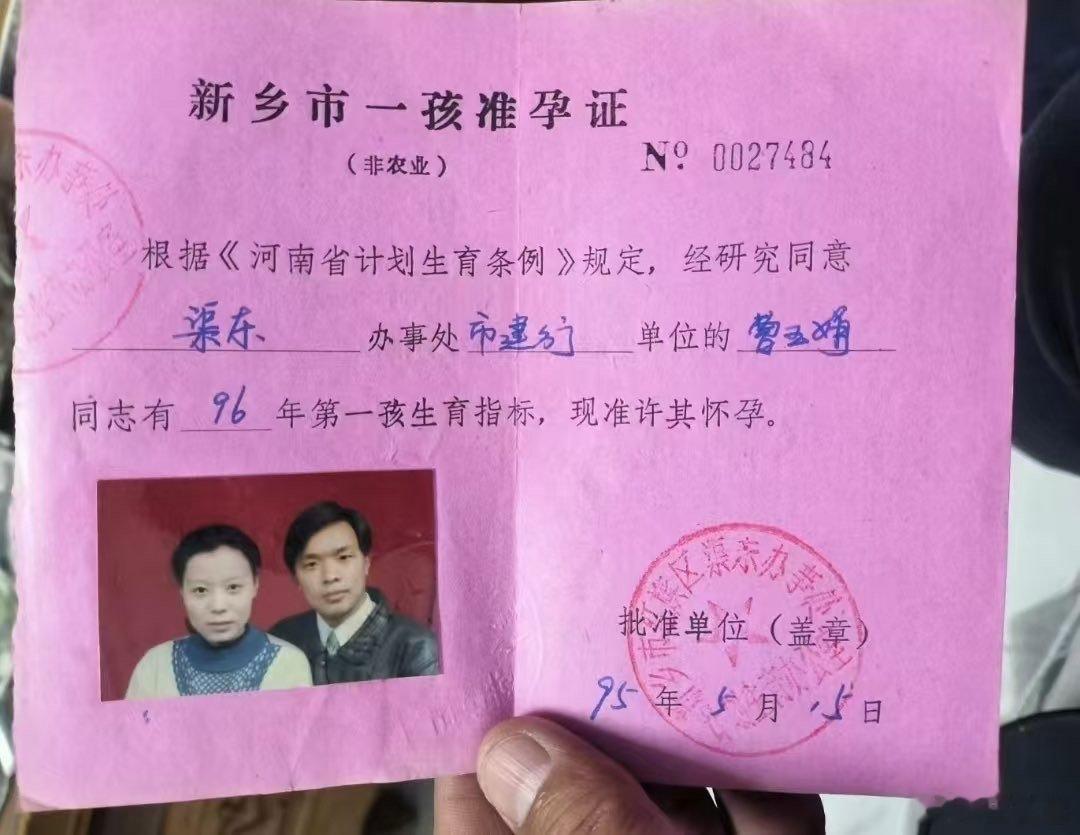 新乡市一孩准孕证
（非农业）
№ 0027484
根据《河南省计划生育条例》规定，经研究同意
渠东 办事处 市建行 单位的 曹玉娟
同志有 96 年第一孩生育指标，现准许其怀孕。
批准单位（盖章）
95 年 5 月 15 日
渠东办事处
区渠东办事处